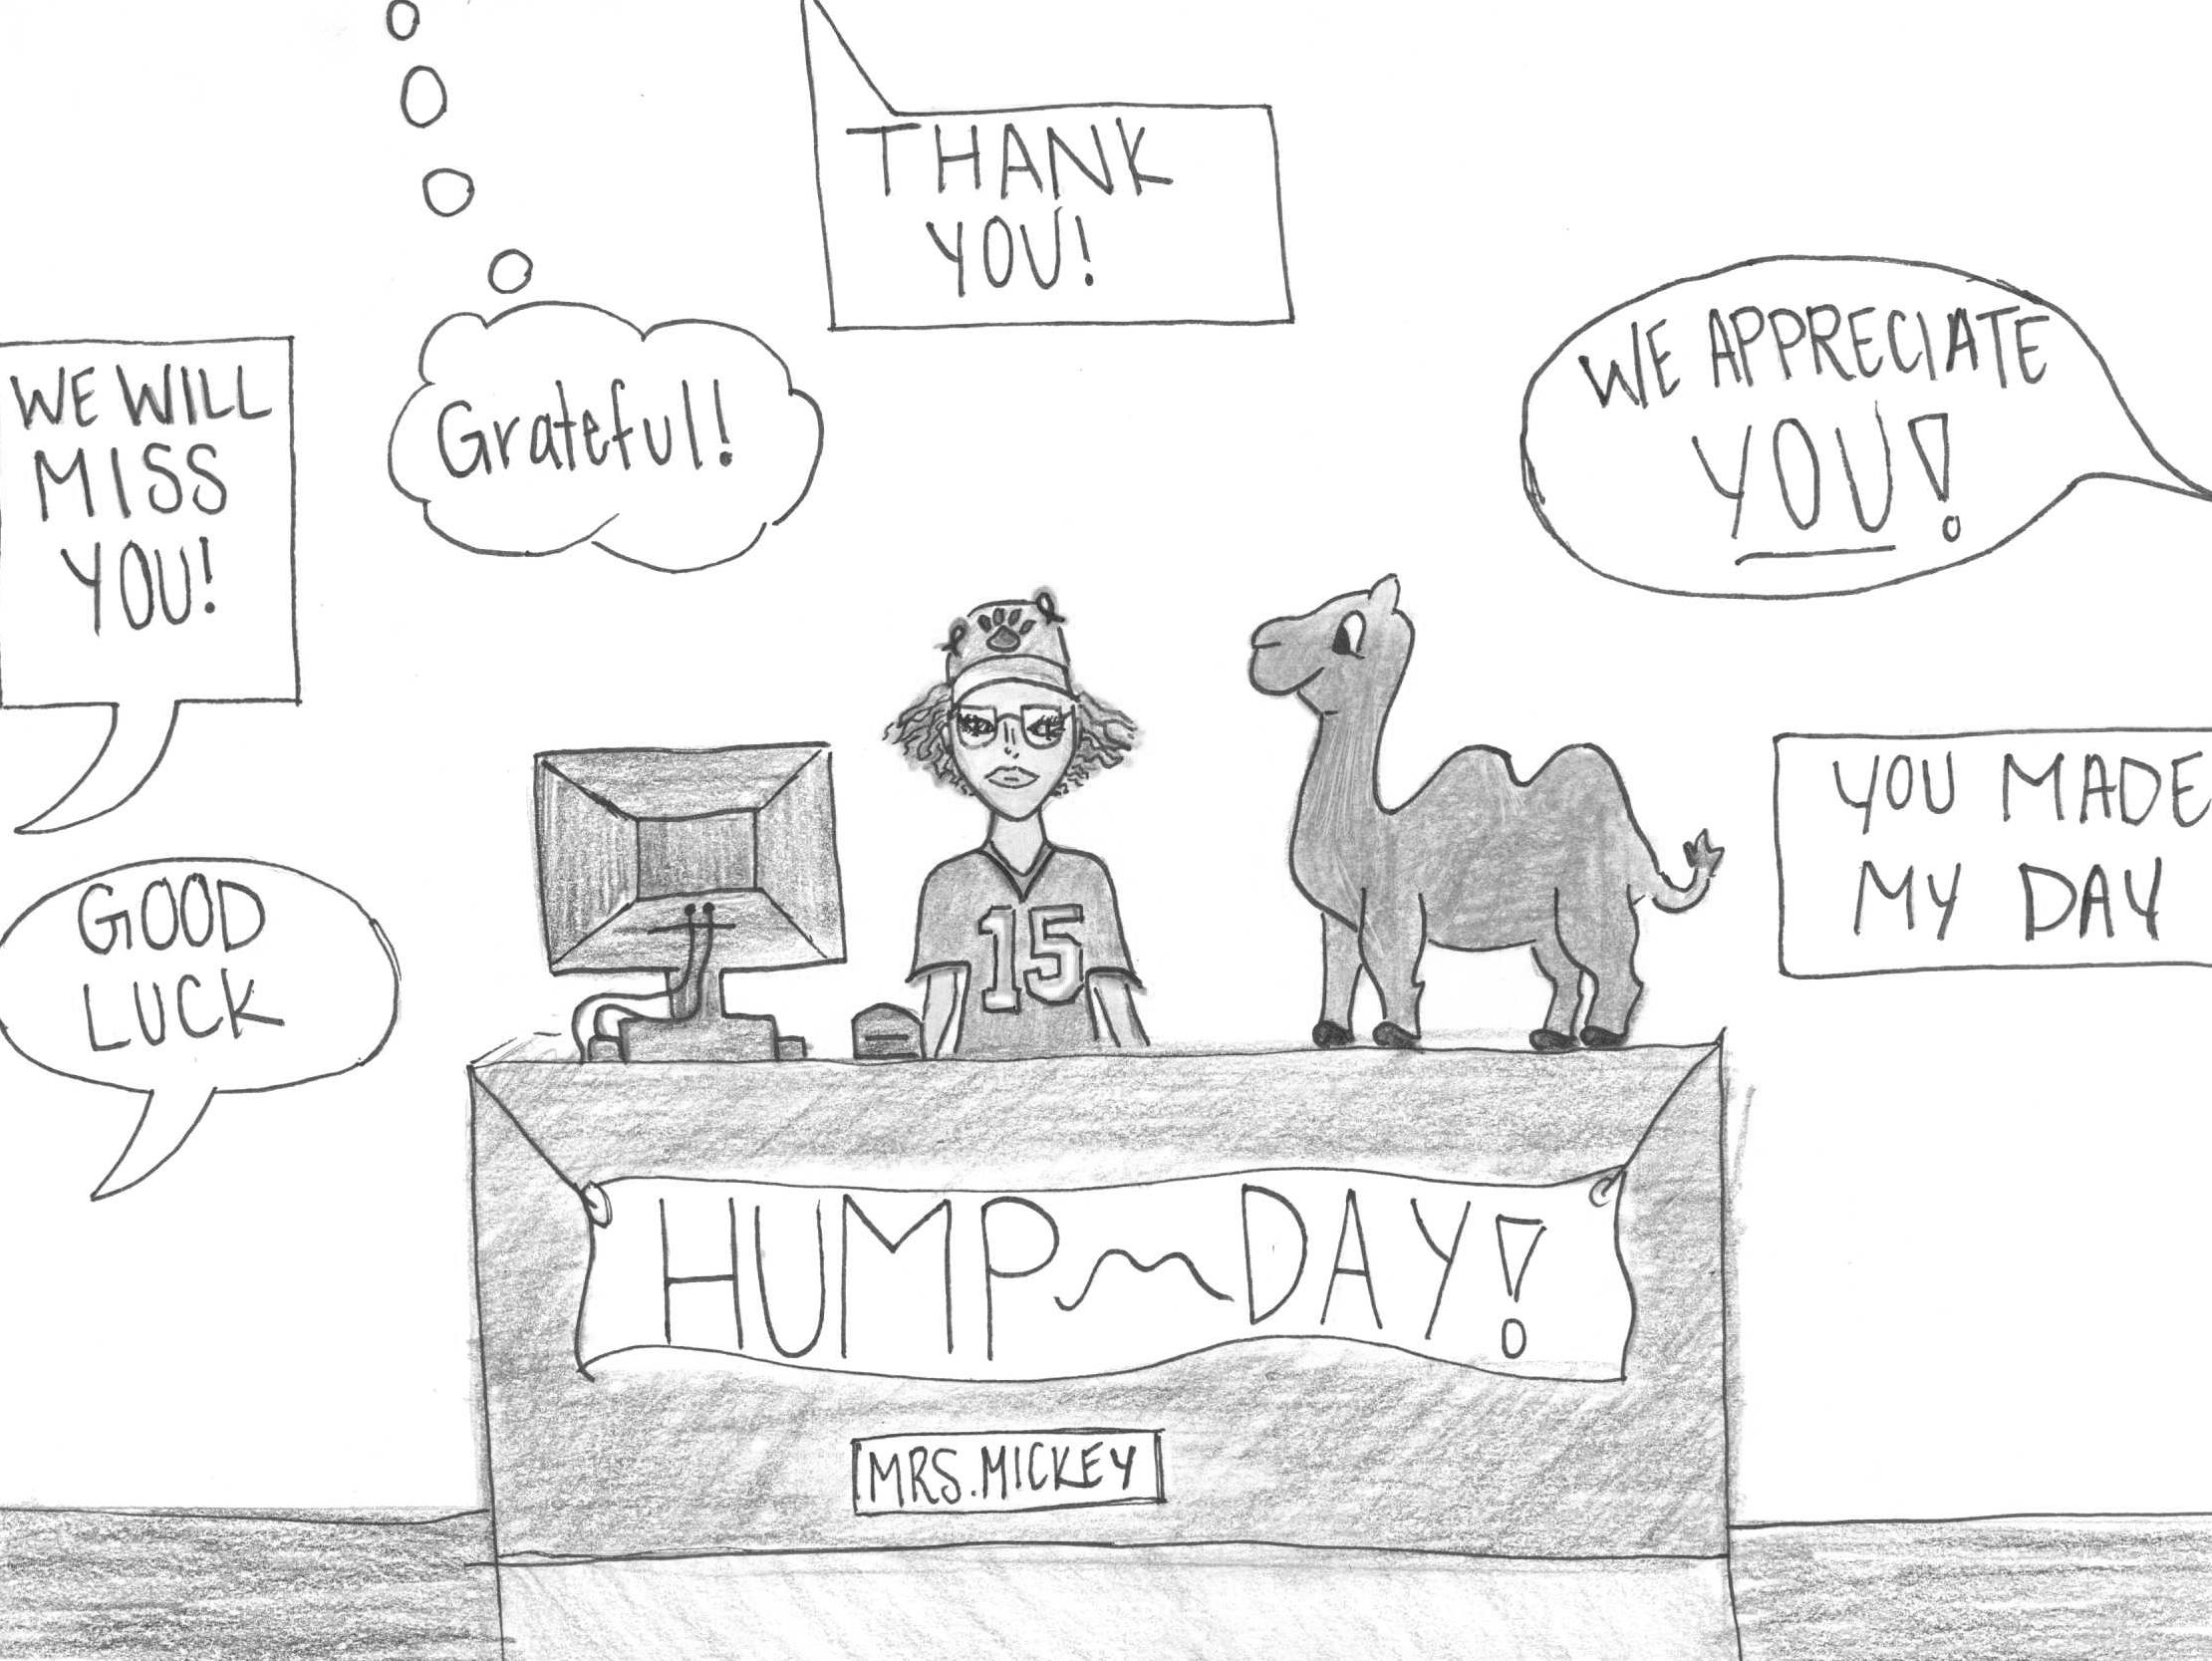 THANK
YOU!
WE WILL
MISS
YOU!
Grateful!
WE APPRECIATE
YOU!
YOU MADE
MY DAY
GOOD
LUCK
15
HUMP~DAY!
MRS. MICKEY